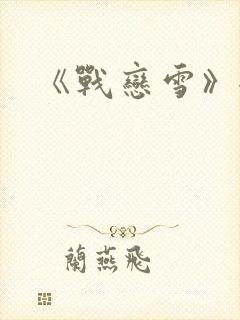 《戰戀雪》
蘭燕飛